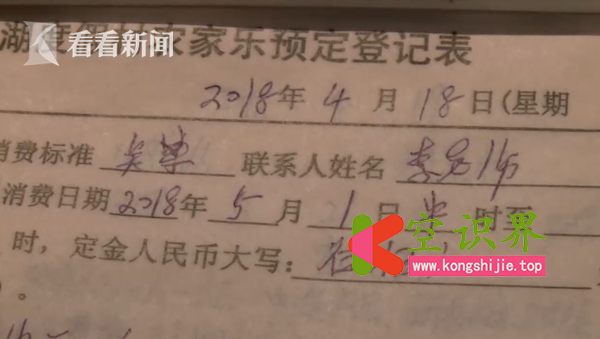 看看新闻
湖度假村农家乐预定登记表
2018年 4 月 18 日(星期
消费标准 联系人姓名 李老师
消费日期 2018年 5 月 1 日 时至
时，定金人民币大写：
空识界
www.kongshijie.top